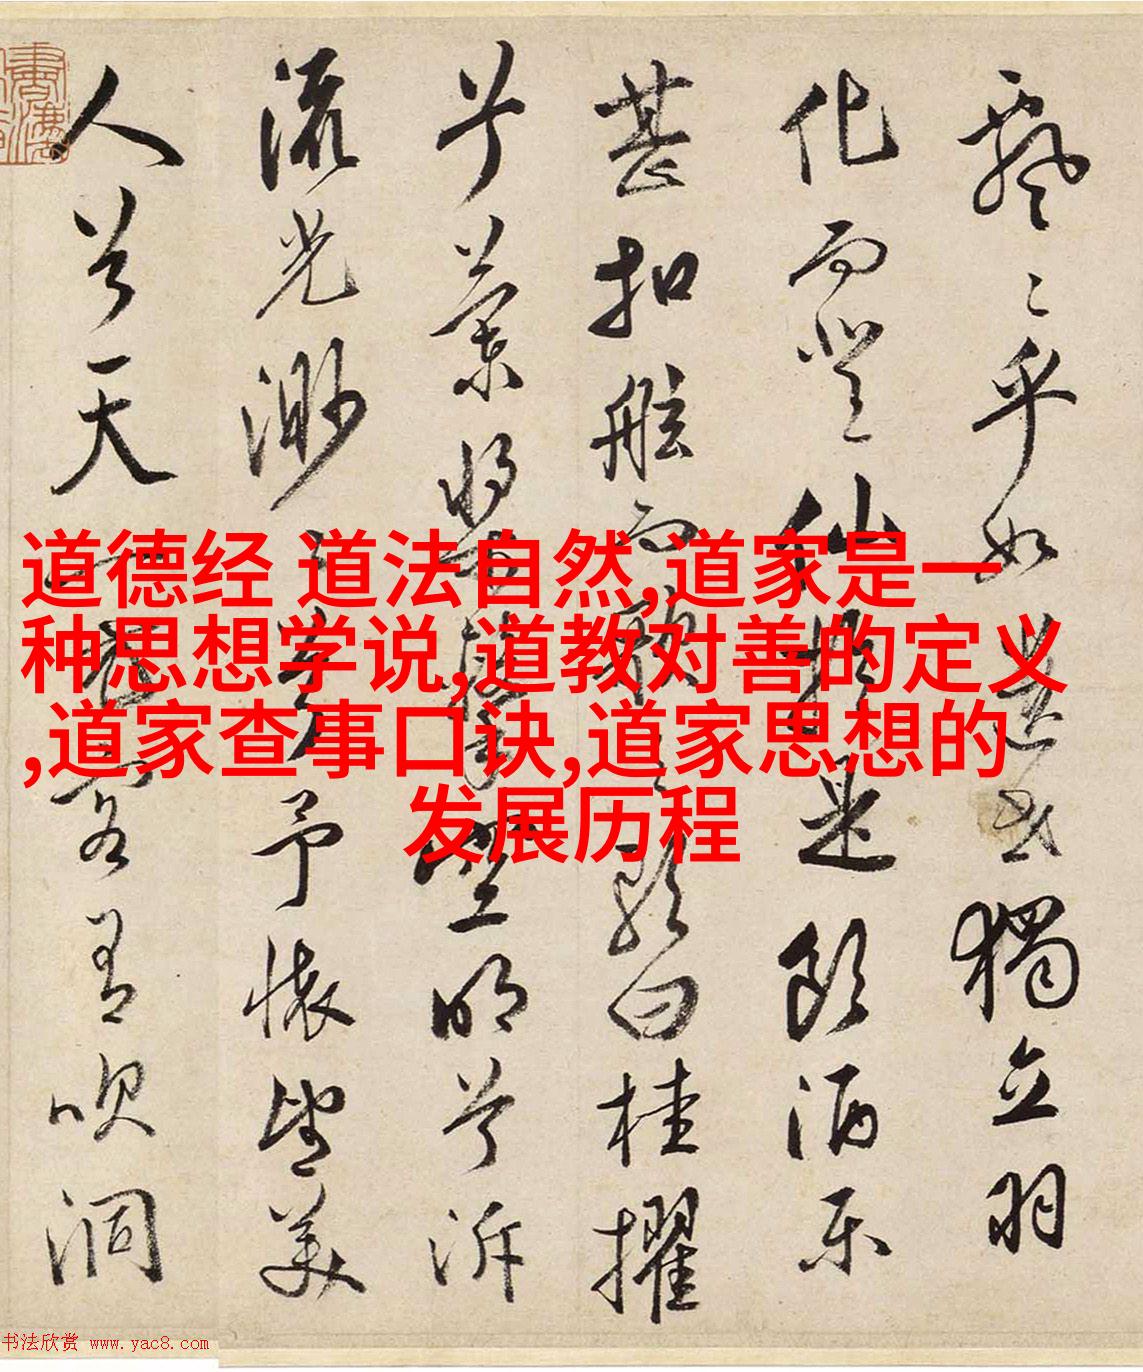 飄〻乎如遺世獨立羽
化而登仙於是飲酒樂
甚扣舷而歌之歌曰桂櫂
兮蘭槳擊空明兮泝
流光渺〻兮予懷望美
人兮天一方客有吹洞
道德经 道法自然,道家是一
种思想学说,道教对善的定义
,道家查事口诀,道家思想的
发展历程
书法欣赏 www.yac8.com